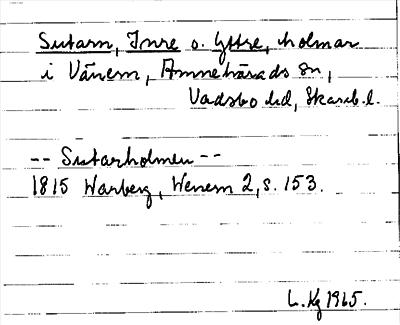 Sutarn, Inre o. Yttre, holmar
i Vänern, Amnehärads sn,
Vadsbo hd, Skarab. l.
-- Sutarholmen --
1815 Warberg, Wenern 2, s. 153.
L. Kg 1965.